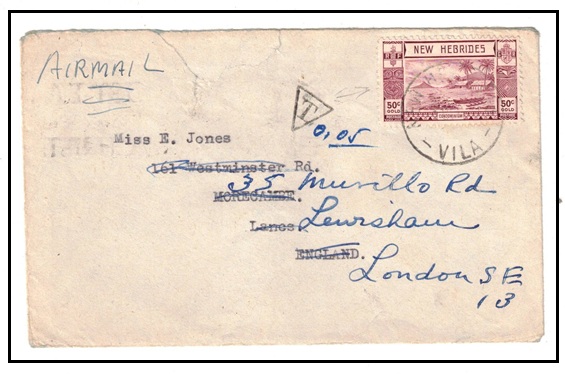 AIRMAIL
NEW HEBRIDES
R F
50c
GOLD
50c
GOLD
CONDOMINIUM
VILA
T
0,05
Miss E. Jones
161 Westminster Rd.
35 Murillo Rd
MORECAMBE.
Lancs. Lewisham
ENGLAND.
London S E
13